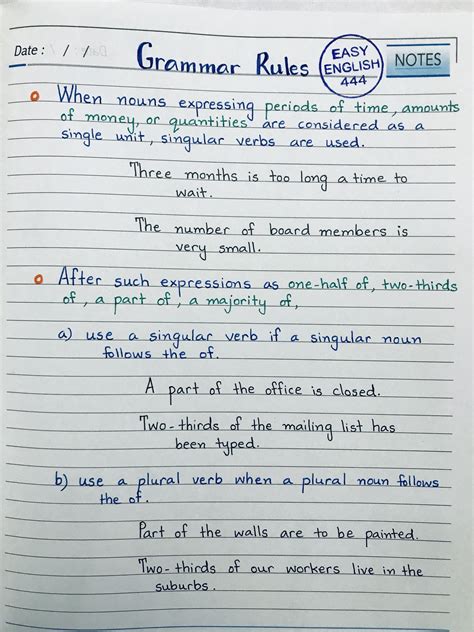 Date : / /
Grammar Rules
EASY
ENGLISH
444
NOTES
When nouns expressing periods of time, amounts
of money, or quantities are considered as a
single unit, singular verbs are used.
Three months is too long a time to
wait.
The number of board members is
very small.
After such expressions as one-half of, two-thirds
of, a part of, a majority of,
a) use a singular verb if a singular noun
follows the of.
A part of the office is closed.
Two-thirds of the mailing list has
been typed.
b) use a plural verb when a plural noun follows
the of.
Part of the walls are to be painted.
Two-thirds of our workers live in the
suburbs.